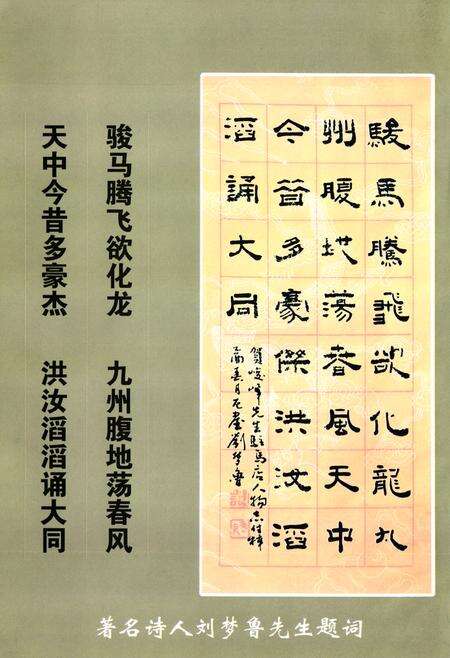 駿馬騰飛欲化龍九
州腹地蕩春風天中
今昔多豪傑洪汝滔
滔誦大同
賀峻峰先生駐馬店人物志付梓
乙酉春月劉夢魯
骏马腾飞欲化龙 九州腹地荡春风
天中今昔多豪杰 洪汝滔滔诵大同
著名诗人刘梦鲁先生题词